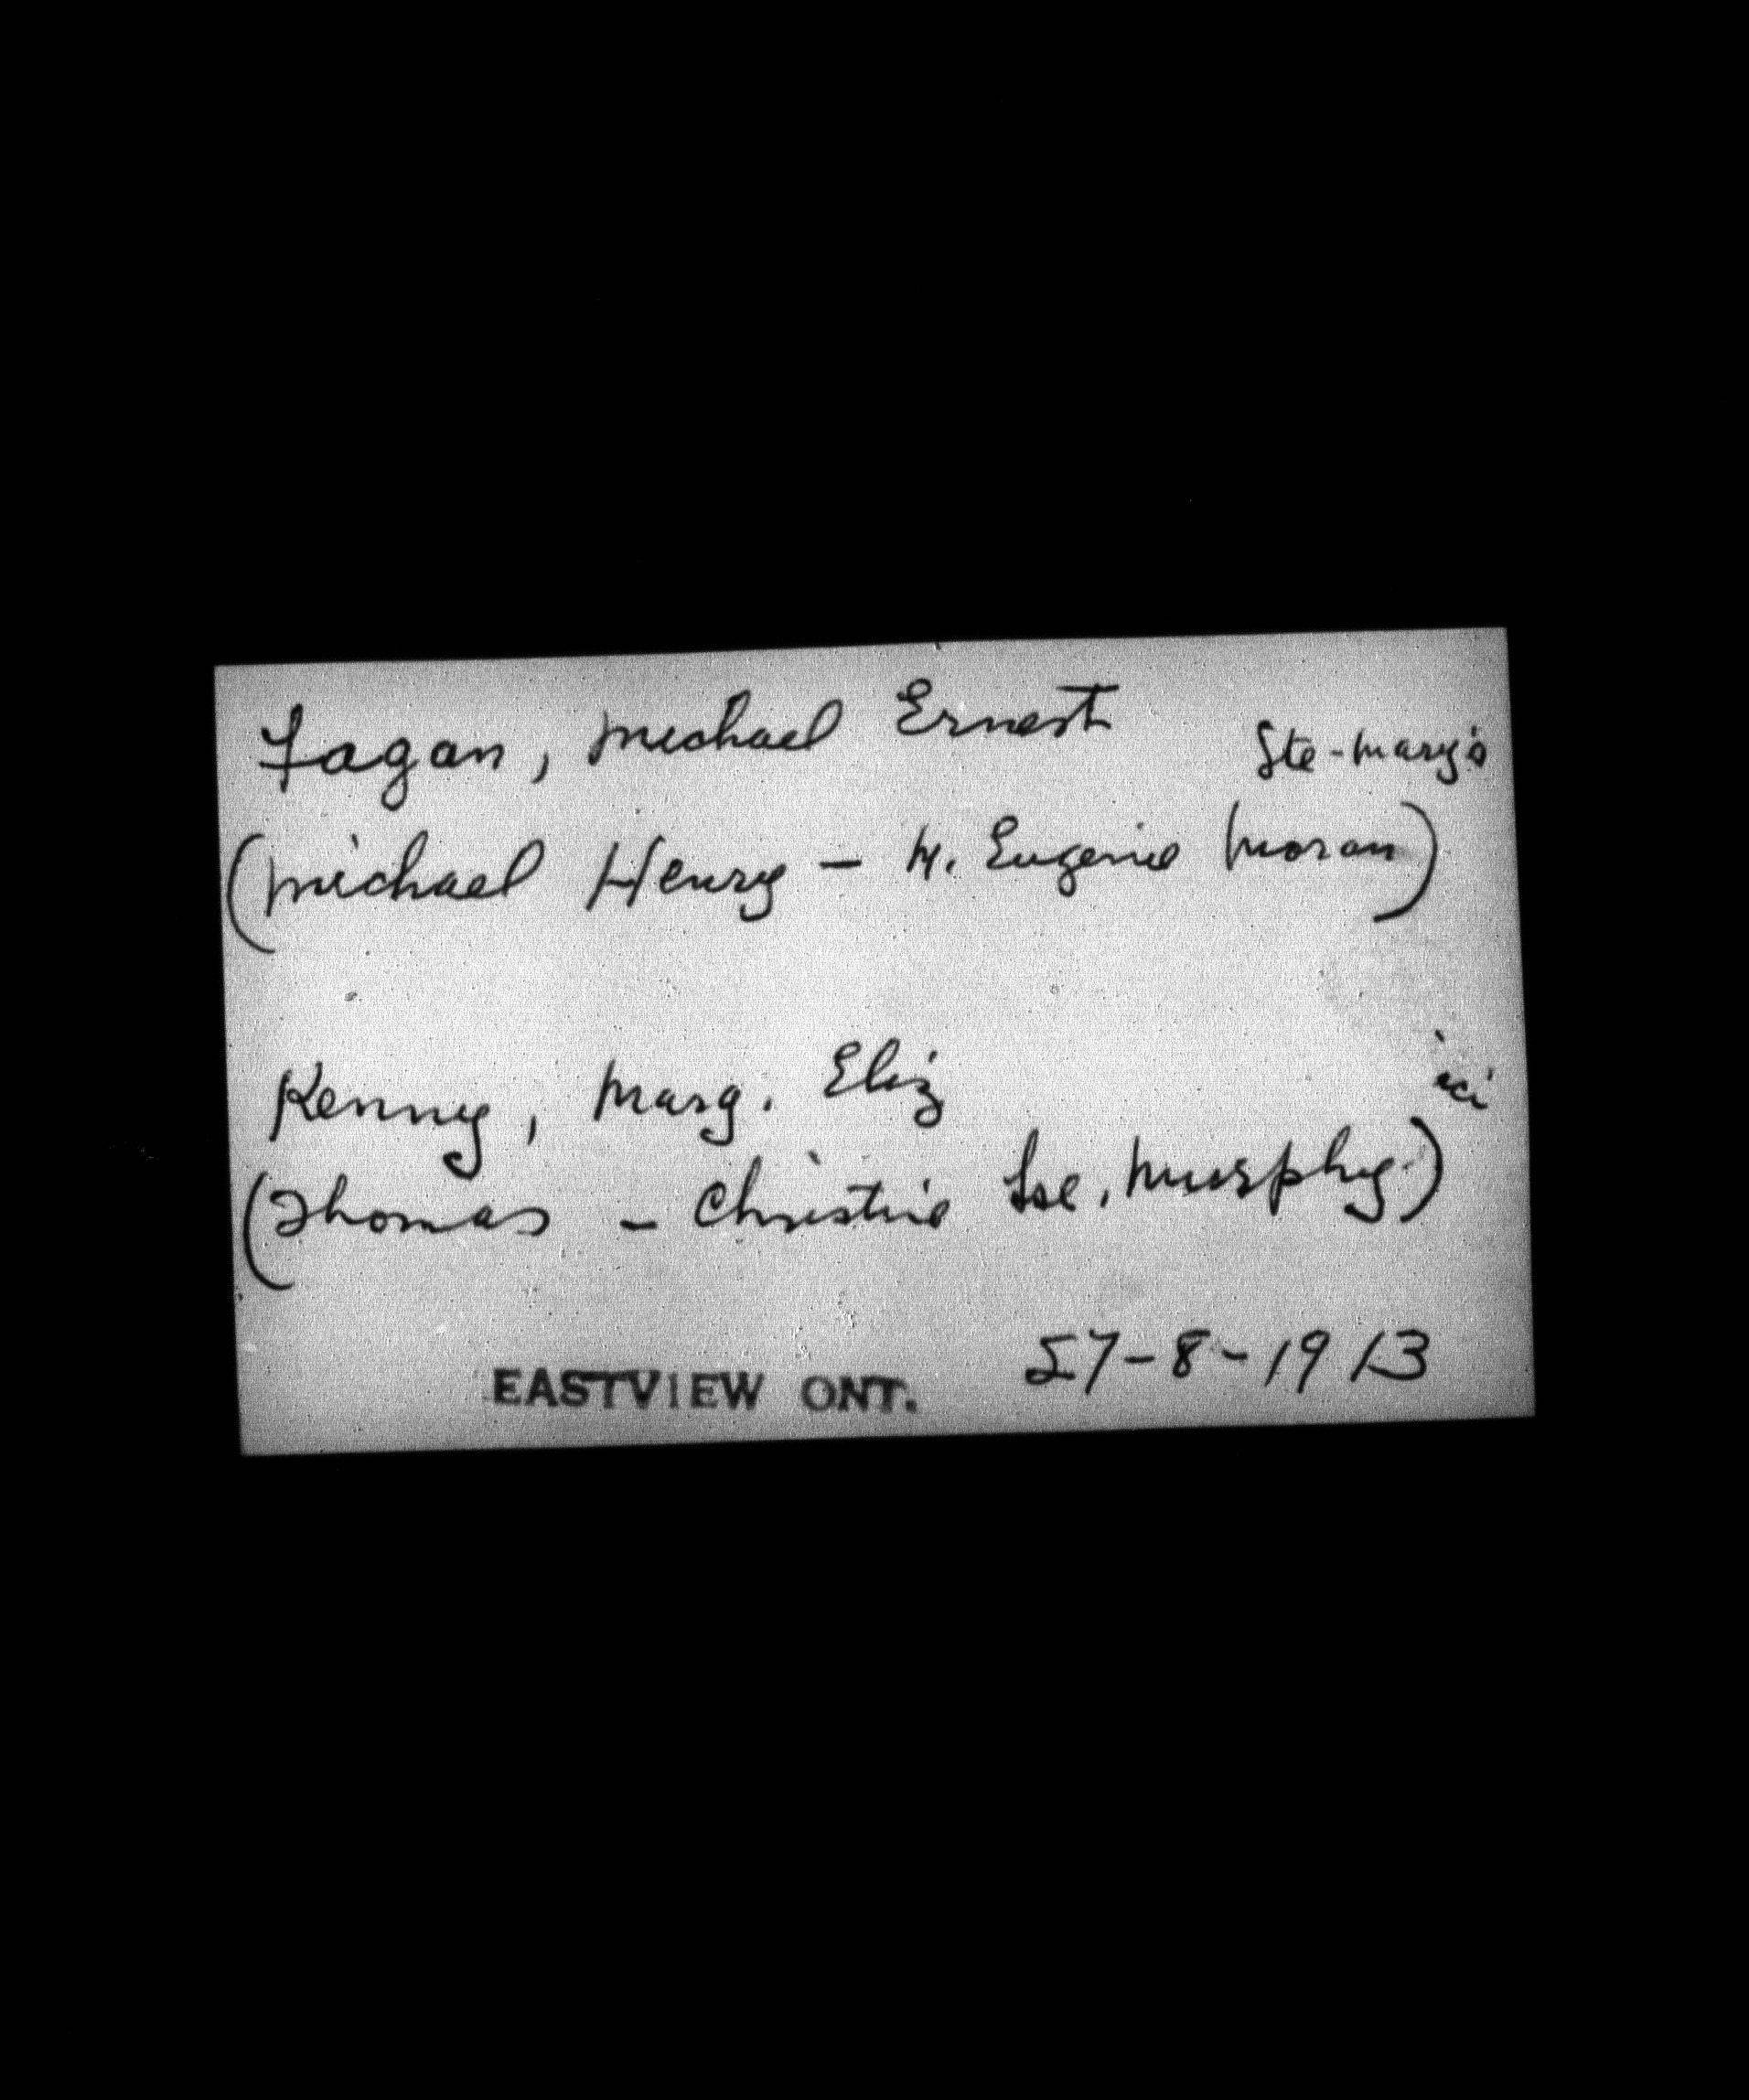 Fagan, Michael Ernest Ste-Mary's
(Michael Henry - M. Eugenie Moran)
Kenny, Marg. Eliz ici
(Thomas - Christine Murphy)
EASTVIEW ONT. 27-8-1913